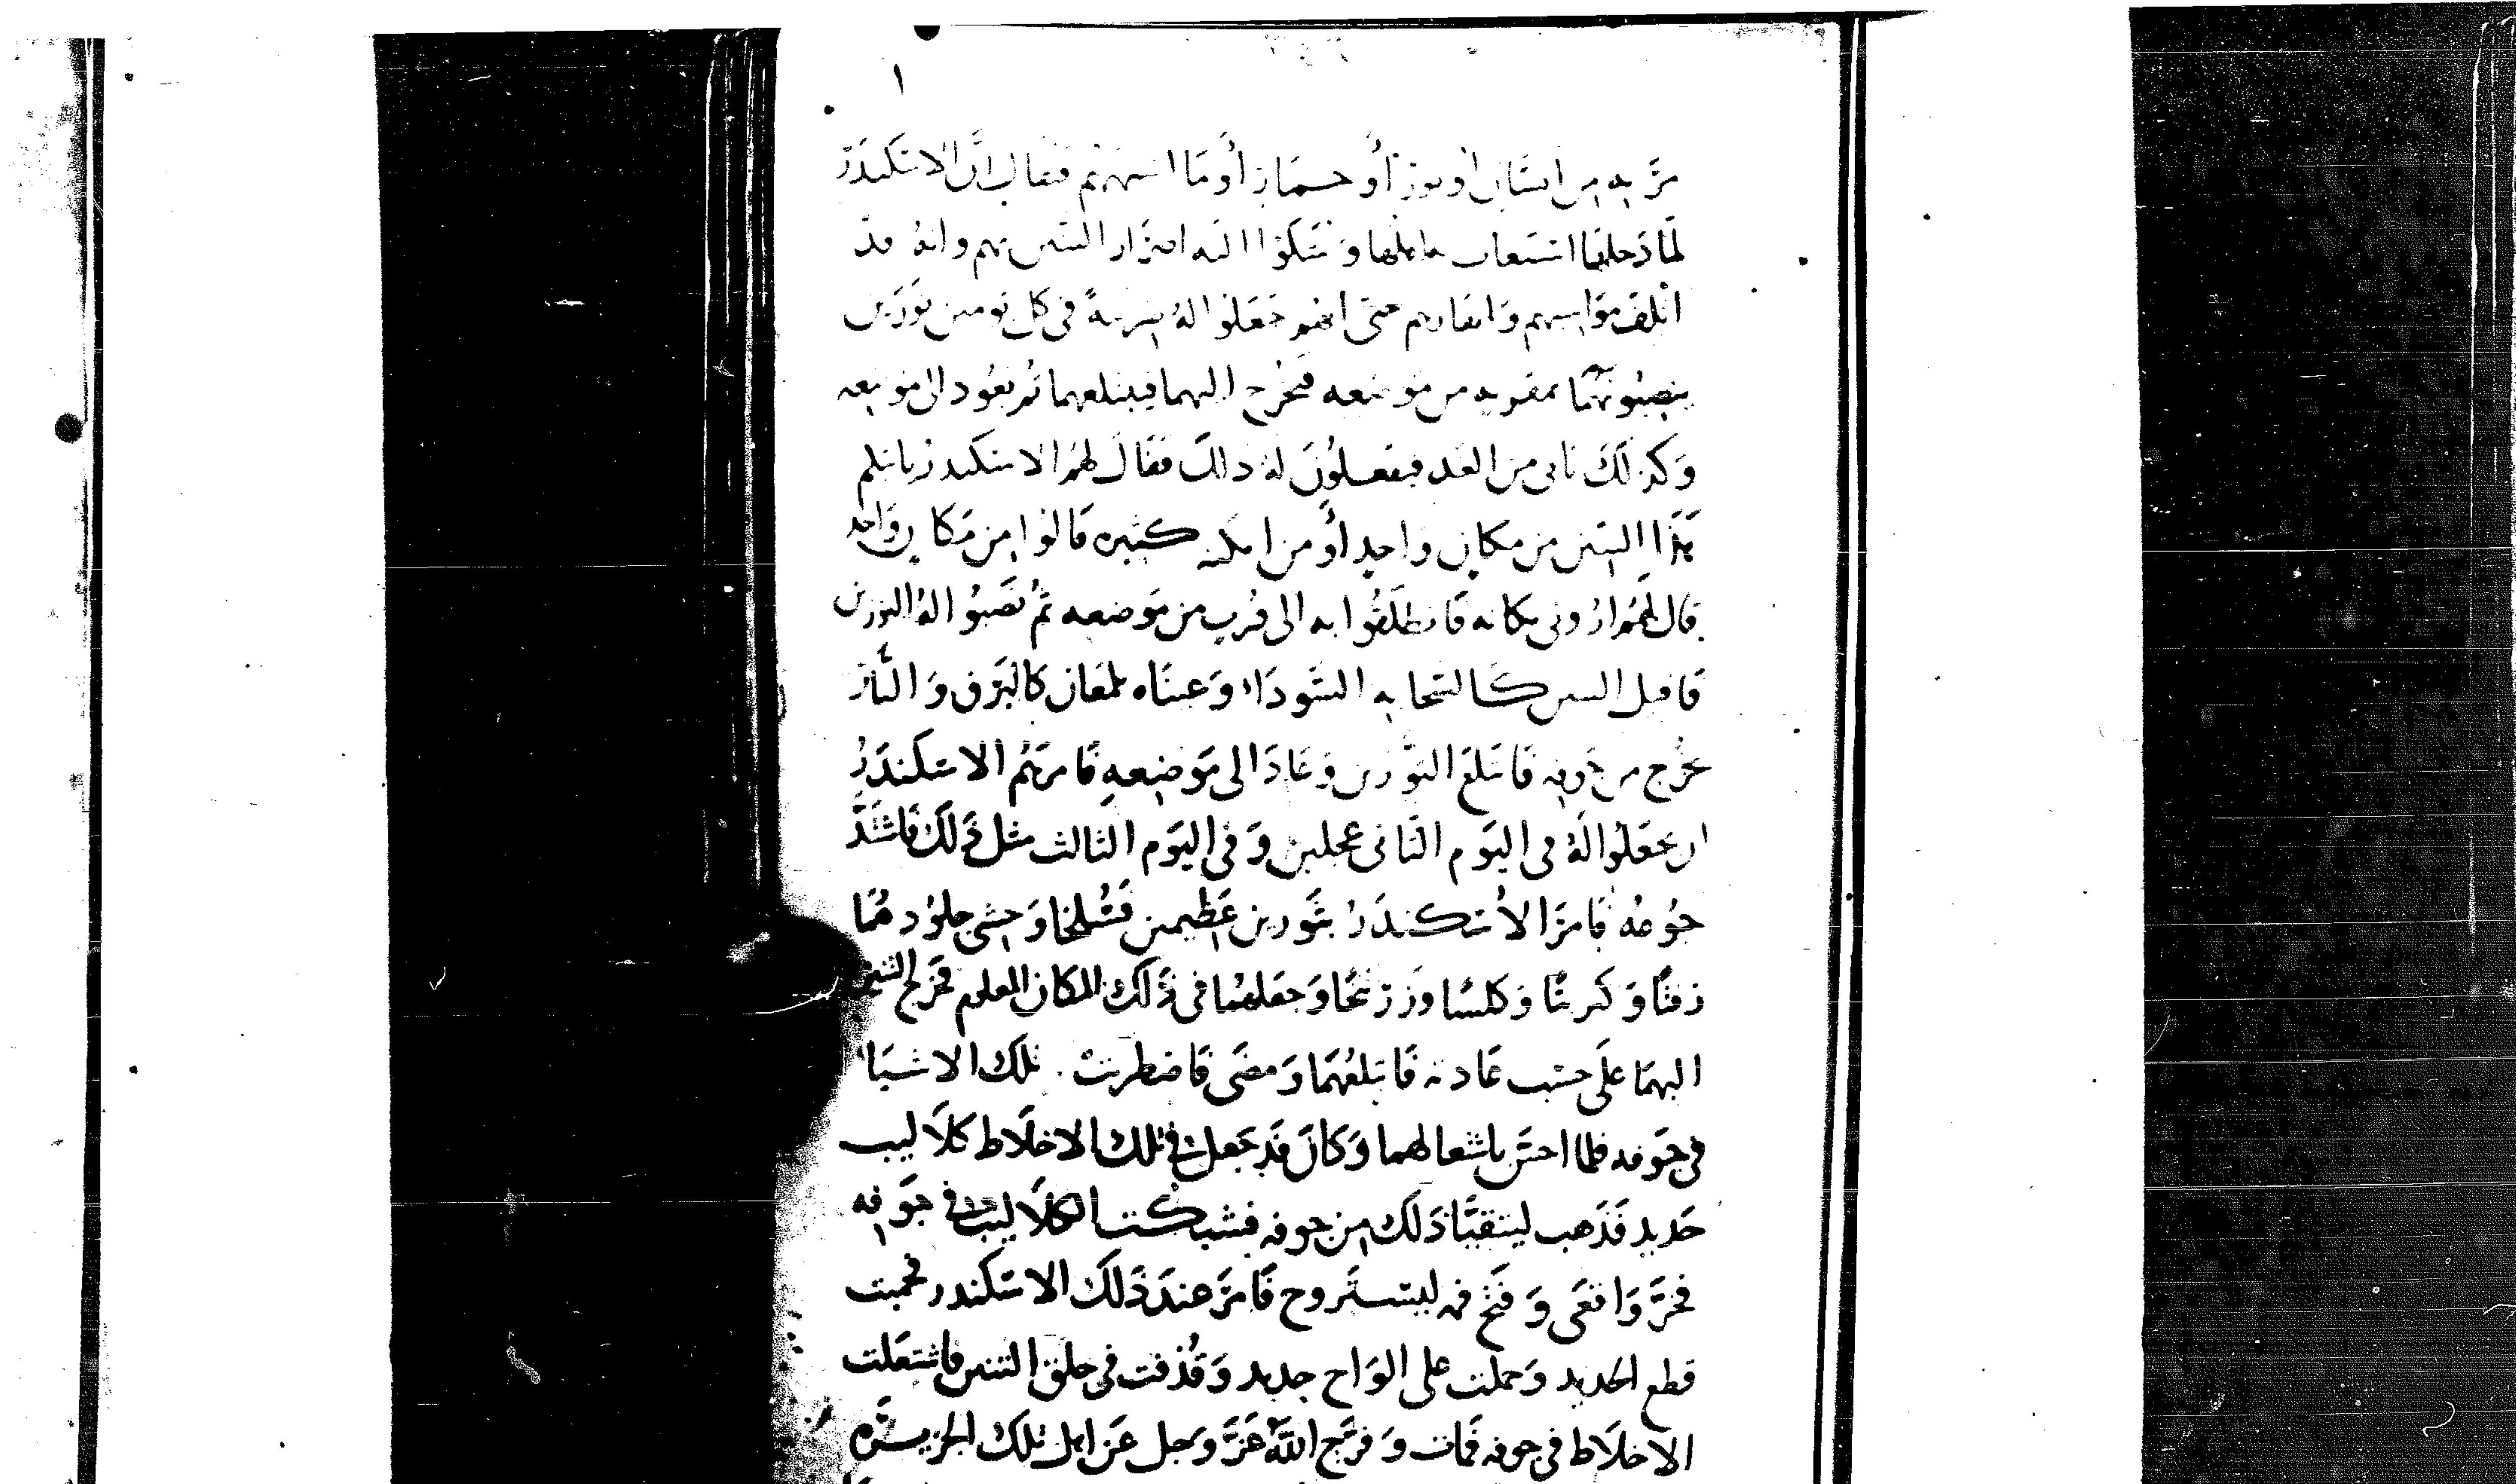 ١
مرَّ به من انسان او ثور أو حمار أو ما اشبههم فقال ان الاسكندر
لما دخلها استغاث به اهلها وشكوا اليه اضرار التنين بهم وانه قد
اتلف مواشيهم وابقارهم حتى انهم جعلوا له ضريبة في كل يومين ثورين
ينصبونهما بمقربه من موضعه فيخرج اليهما فيبتلعهما ثم يعود الى موضعه
وكذلك ياتي من الغد فيفعلون له ذلك فقال لهم الاسكندر ياتيكم
هذا التنين من مكان واحد أو من امكنه كثيره قالوا من مكان واحد
قال لهم اروني مكانه فانطلقوا به الى قرب من موضعه ثم نصبوا له الثورين
فاقبل التنين كالسحابه السوداء وعيناه تلمعان كالبرق والنار
تخرج من جوفه فابتلع الثورين وعاد الى موضعه فامرهم الاسكندر
ان يجعلوا له في اليوم الثاني عجلين وفي اليوم الثالث مثل ذلك فاشتد
جوعه فامر الاسكندر بثورين عظيمين فسلخا وحشى جلودهما
زفتا وكبريتا وكلسا وزرنيخا وجعلهما في ذلك المكان المعلوم فخرج التنين
اليهما على حسب عادته فابتلعهما ومضى فاضطربت تلك الاشيا
في جوفه فلما احس باشعالهما وكان قد جعل في تلك الاخلاط كلاليب
حديد فذهب ليتقيا ذلك من جوفه فشبكت الكلاليب في جوفه
فخرَّ وانقعى وفتح فمه ليستروح فامر عند ذلك الاسكندر فحميت
قطع الحديد وحملت على الواح حديد وقذفت في حلق التنين فاشتعلت
الاخلاط في جوفه فمات وفرّج الله عزَّ وجل عن اهل تلك الجزيره